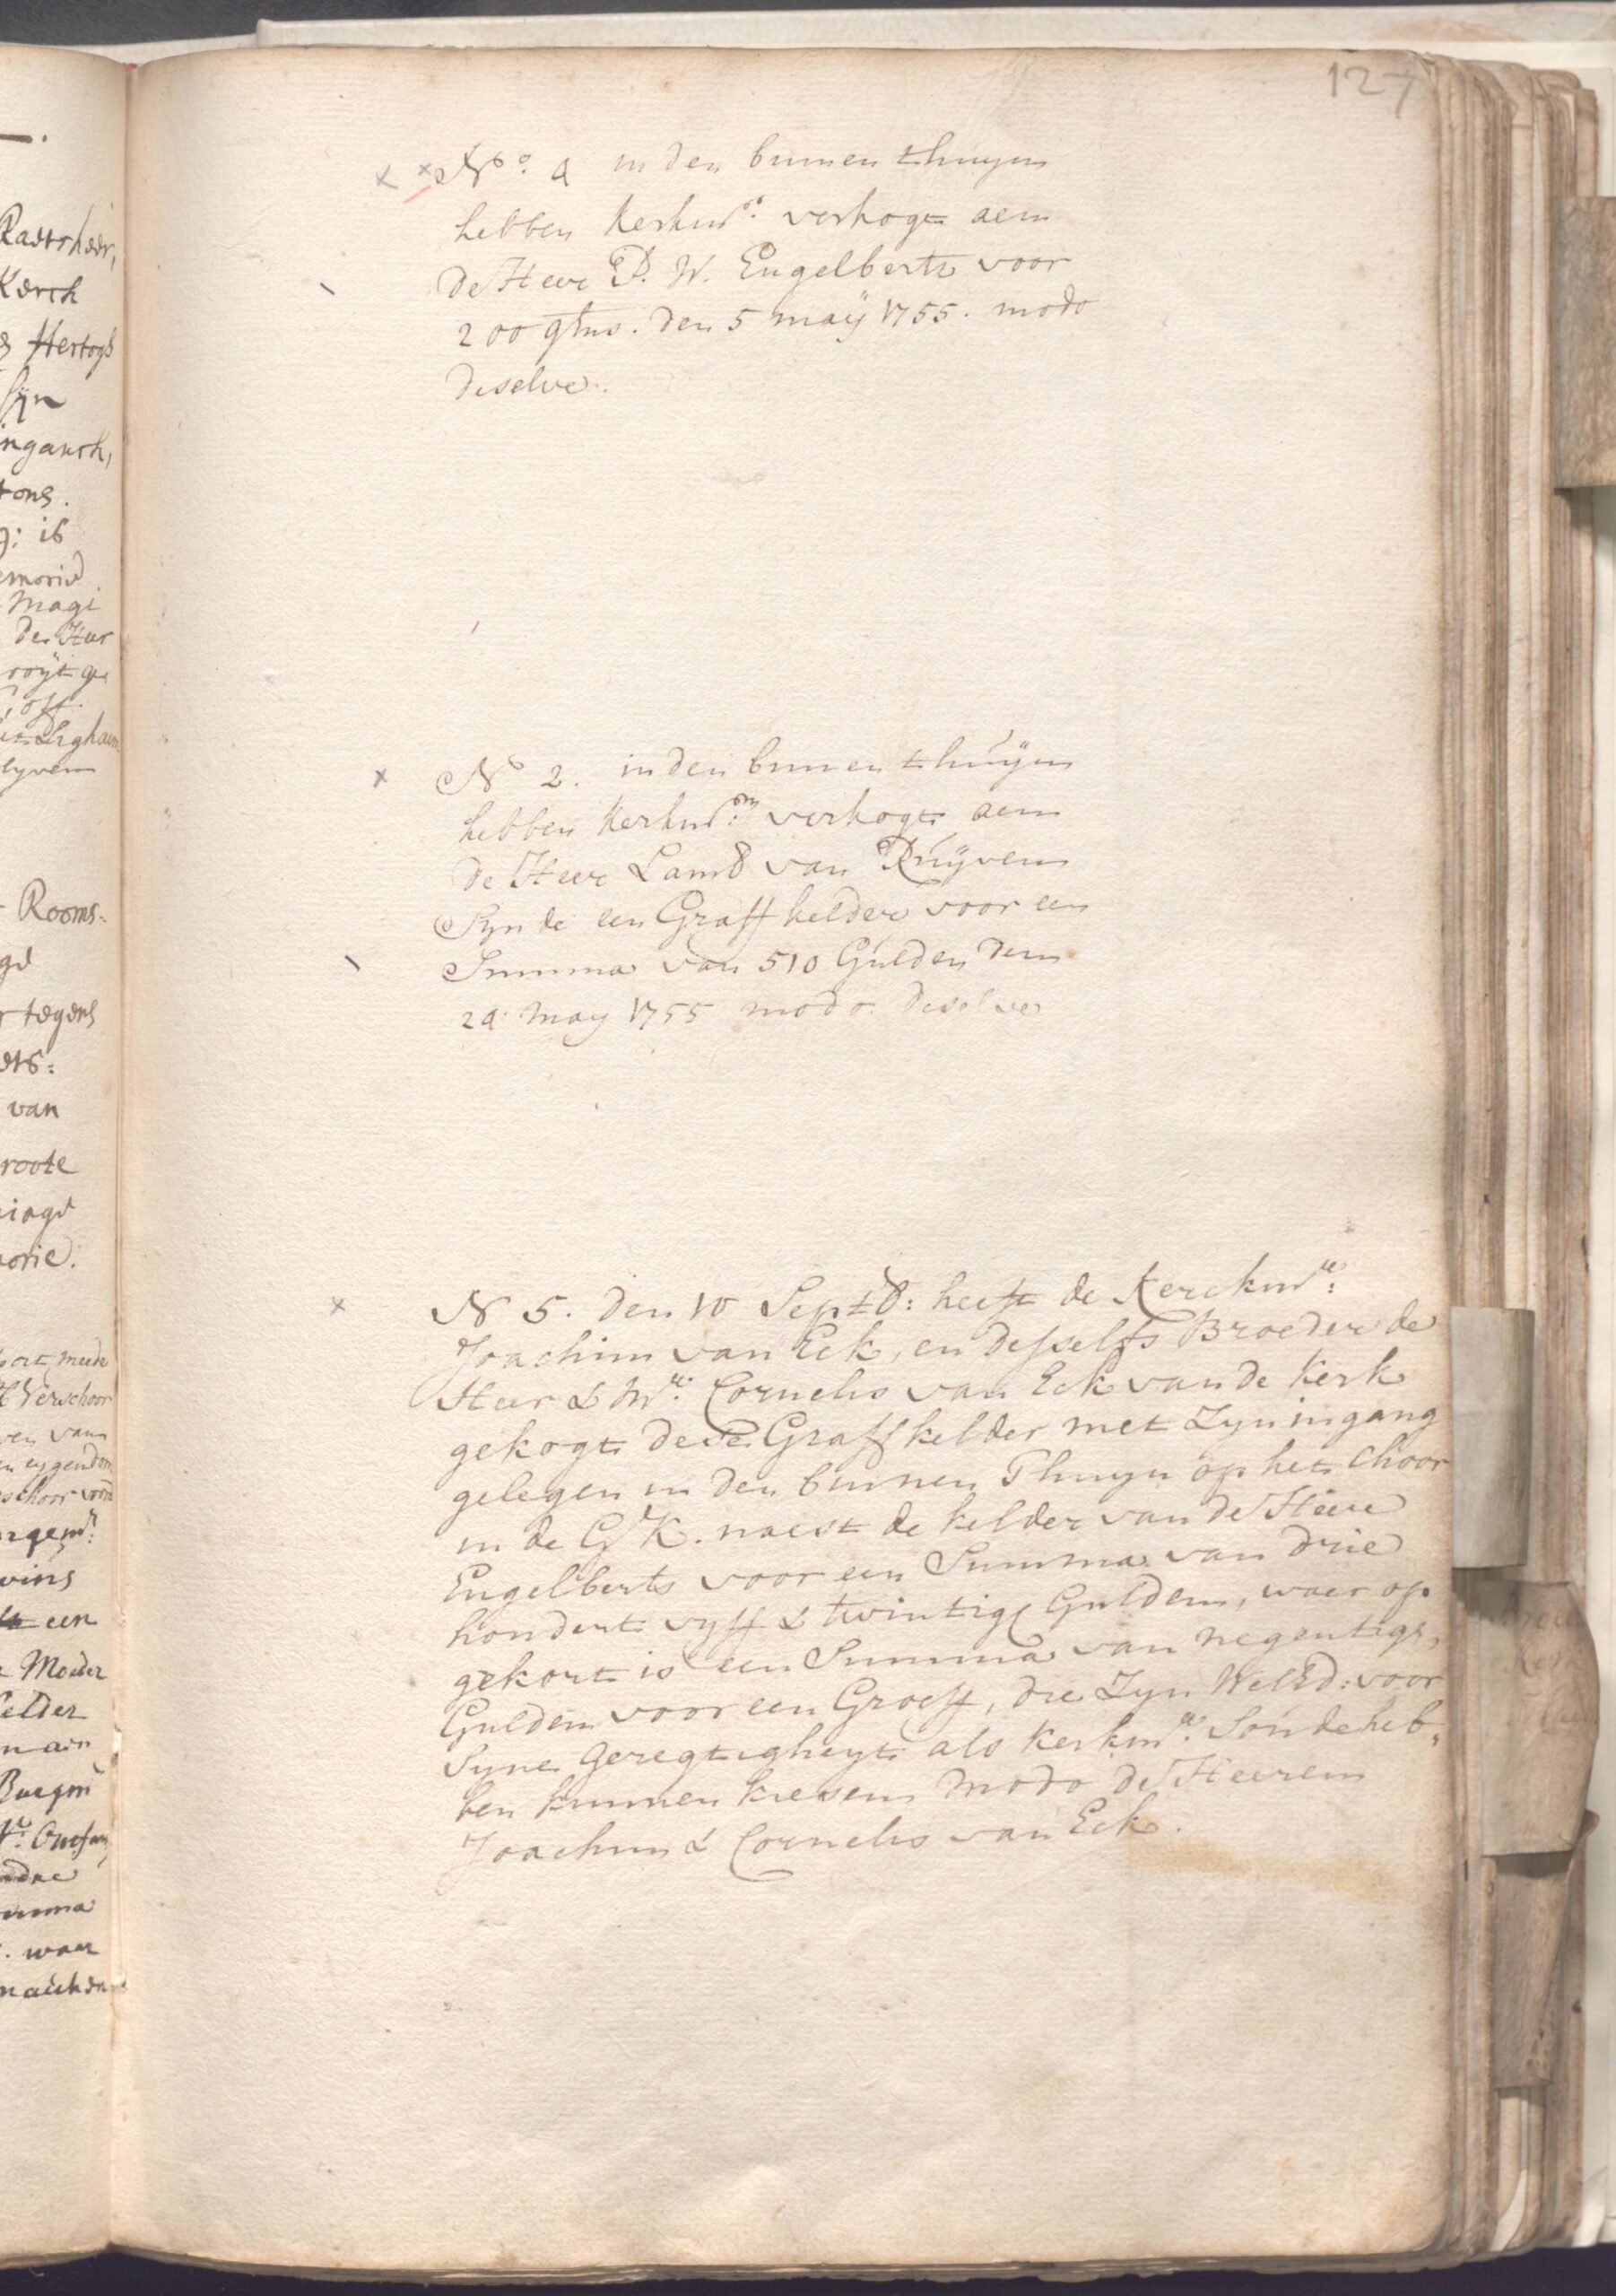 127
No. 4 in den binnen thuyn
hebben Kerkmrs. verkogt aen
de Heer P. W. Engelberts voor
200 glns. den 5 maÿ 1755. modo
deselve.
N 2. in den binnen thuÿn
hebben Kerkmrn: verkogt aen
de Heer Lamb van Ruÿven
Synde een Graffkelder voor een
Summa van 510 Gulden den
24. may 1755 modo deselve
N 5. den 10 Septb: heeft de Kerckmr:
Joachim van Eck, en desselfs Broeder de
Heer & Mr. Cornelis van Eck van de Kerk
gekogt dese Graffkelder met Zyn ingang
gelegen in den binnen Thuyn op het Choor
in de G K. naest de kelder van de Heere
Engelberts voor een Summa van drie
hondert vyff & twintig Gulden, waer op
gekort is een Summa van negentigh,
Gulden voor een Groeff, die Zyn WelEd: voor
Syne Geregtigheyt als Kerkmr. Soude heb,
ben kunnen kiesen modo de Heeren
Joachim & Cornelis van Eck.
Raetsheer,
Kerck
Hertogs
Syn
tons.
: is
emorie
Magi
de Heer
Rooms-
tegens
van
roote
orie.
meede
Verschoor
van
eygendom
schoor
een
Moeder
kelder
Burgm
summa
. waer